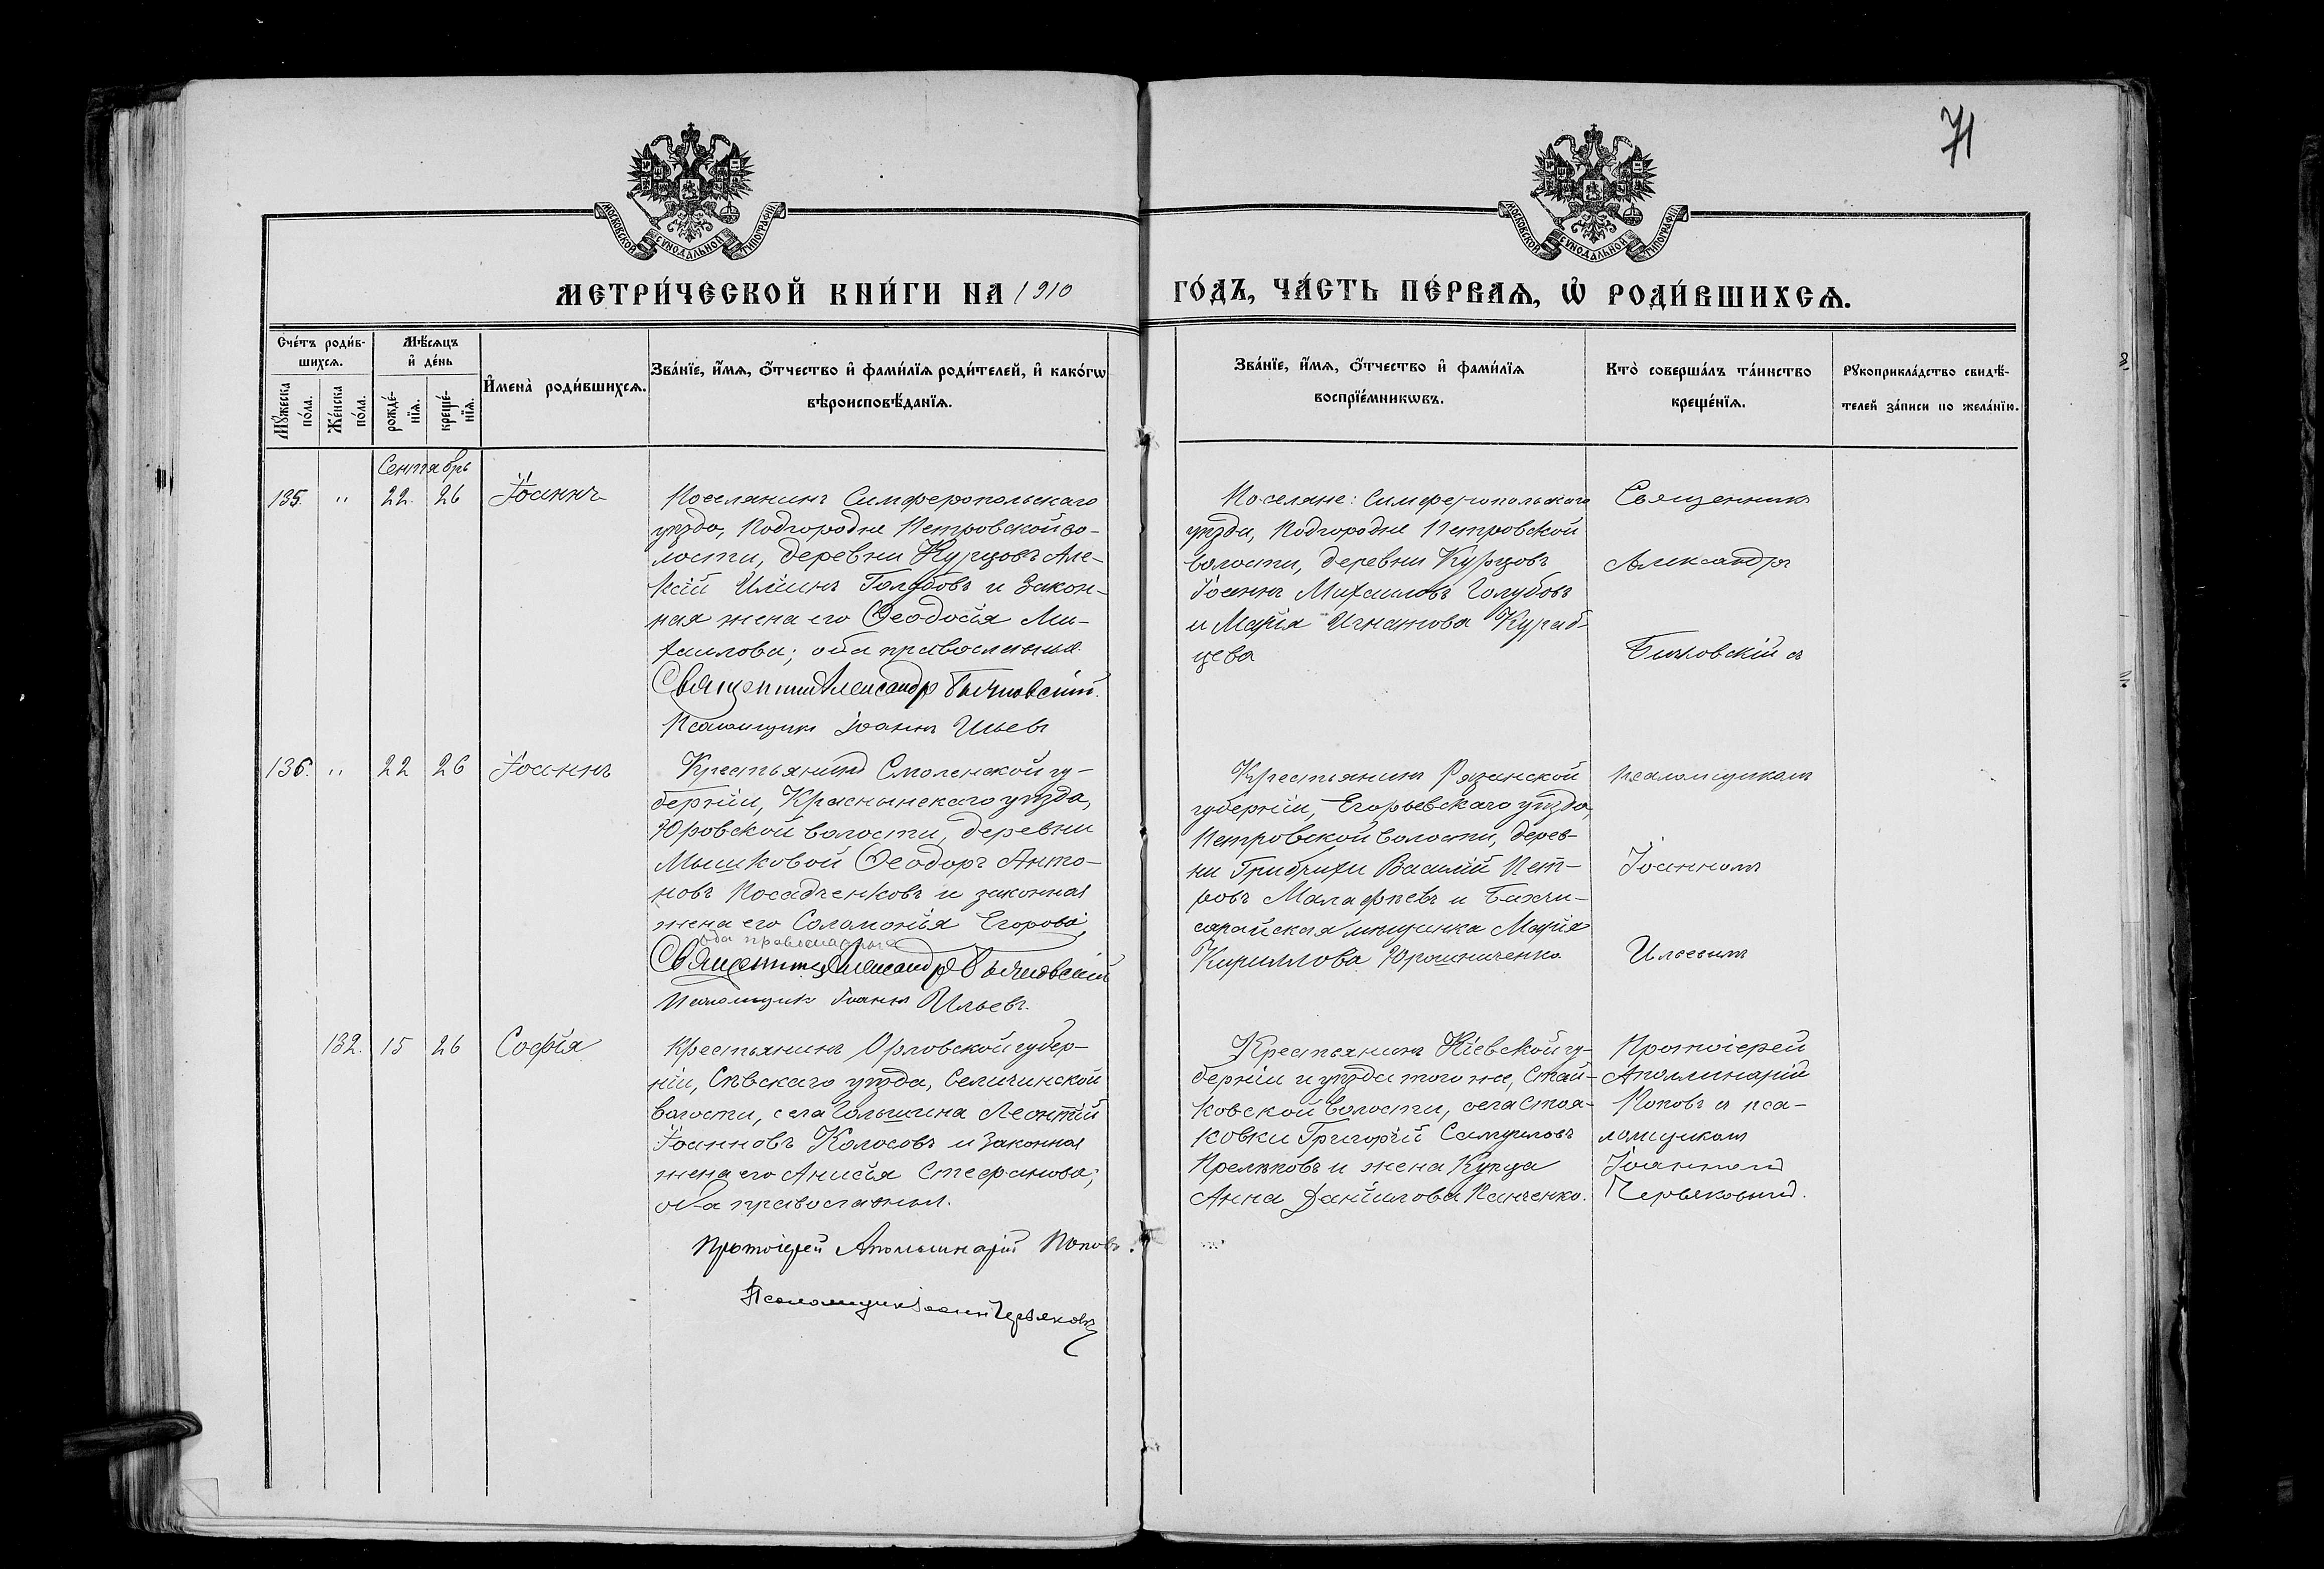 71
МОСКОВСКОЙ СѴНОДАЛЬНОЙ ТИПОГРАФІИ
МОСКОВСКОЙ СѴНОДАЛЬНОЙ ТИПОГРАФІИ
МЕТРИ́ЧЕСКОЙ КНИ́ГИ НА 1910
ГО́ДЪ, ЧА́СТЬ ПЕ́РВАѦ, Ѽ РОДИ́ВШИХСѦ.
Сче́тъ роди́в-
шихсѧ.
Мꙋ́жеска по́ла.
Же́нска по́ла.
Мѣ́сѧцъ
и҆ де́нь
рожде́-
нїѧ.
креще́-
нїѧ.
И҆мена̀ роди́вшихсѧ.
Зва́нїе, и҆́мѧ, ѻ҆́тчество и҆ фами́лїѧ роди́телей, и҆ како́гѡ
вѣроисповѣ́данїѧ.
Зва́нїе, и҆́мѧ, ѻ҆́тчество и҆ фами́лїѧ
воспрїе́мникѡвъ.
Кто̀ соверша́лъ та́инство
креще́нїѧ.
Рꙋкоприкла́дство свидѣ́-
телей за́писи по жела́нїю.
Сентябрь
135. " 22. 26 Іоаннъ
Поселянинъ Симферопольскаго
уѣзда, Подгородне Петровской во-
лости, деревни Курцовъ Але-
ксій Иліинъ Голубовъ и закон-
ная жена его Ѳеодосія Ми-
хаилова; оба православные.
Священникъ Александръ Бычковскій.
Псаломщикъ Іоаннъ Ильевъ
Поселяне: Симферопольскаго
уѣзда, Подгородне Петровской
волости, деревни Курцовъ
Іоаннъ Михаиловъ Голубовъ
и Марія Игнатова Кураб-
цева
Священникъ
Александръ
Бычковскій съ
136. " 22 26 Іоаннъ
Крестьянинъ Смоленской гу-
берніи, Краснынскаго уѣзда,
Юровской волости, деревни
Мышковой Ѳеодоръ Анто-
новъ Посадченковъ и законная
жена его Соломонія Егорова
оба православные
Священникъ Александръ Бычковскій
Псаломщикъ Іоаннъ Ильевъ.
Крестьянинъ Рязанской
губерніи, Егорьевскаго уѣзда,
Петровской волости, дерев-
ни Василій Пет-
ровъ Малафѣевъ и Бахчи-
сарайская мѣщанка Марія
Кириллова
псаломщикомъ
Іоанномъ
Ильевымъ
132. 15 26 Софія
Крестьянинъ Орловской губер-
ніи, Сѣвскаго уѣзда, Селичинской
волости, села Голышина Леонтій
Іоанновъ Колосовъ и законная
жена его Анисія Стефанова;
оба православные.
Протоіерей Аполлинарій Поповъ.
Псаломщикъ Іоаннъ Червяковъ
Крестьянинъ Кіевской гу-
берніи и уѣзда того же, Стай-
ковской волости, села Стоя-
ковки Григорій Самуиловъ
и жена Купца
Анна Даніилова Панченко.
Протоіерей
Аполлинарій
Поповъ съ пса-
ломщикомъ
Іоанномъ
Червяковымъ.